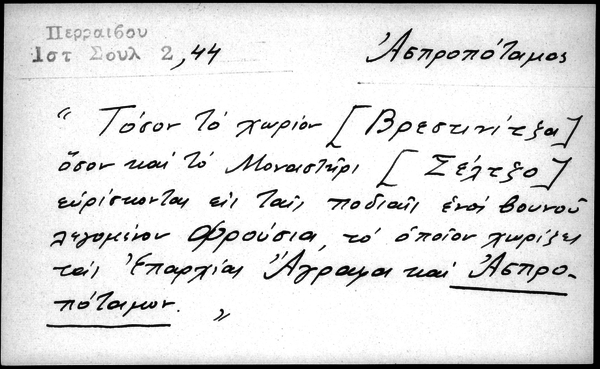 Περραιβου
Ιστ Σουλ 2, 44
Ἀσπροπόταμος
"Τόσον τό χωρίον [Βρεστινίτζα]
ὅσον καί τό Μοναστήρι [Σέλτζο]
εὑρίσκονται εἰς ταῖς ποδιαῖς ἑνός βουνοῦ
λεγομένον Φρούσια, τό ὁποῖον χωρίζει
ταῖς Ἐπαρχίας Ἄγραφα καί Ἀσπρο-
πόταμον. "